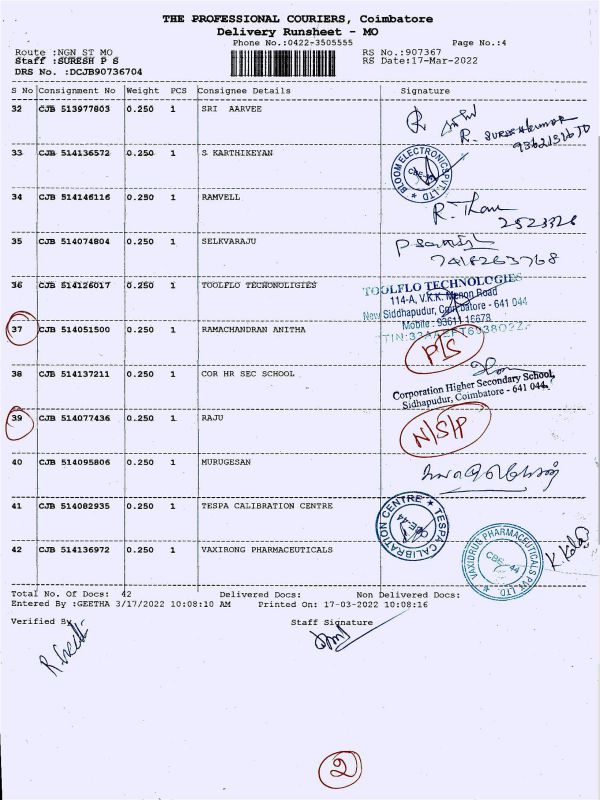 THE PROFESSIONAL COURIERS, Coimbatore
Delivery Runsheet - MO
Phone No.:0422-3505555
Page No.:4
Route :NGN ST MO
RS No.:907367
Staff :SURESH P S
RS Date:17-Mar-2022
DRS No. :DCJB90736704
S No Consignment No Weight PCS Consignee Details Signature
32 CJB 513977803 0.250 1 SRI AARVEE
R. SURESHkumar
33 CJB 514136572 0.250 1 S KARTHIKEYAN
BLOOM ELECTRONICS PVT. LTD
CBE-
34 CJB 514146116 0.250 1 RAMVELL
R.
2523326
35 CJB 514074804 0.250 1 SELKVARAJU
36 CJB 514126017 1 TOOLFLO TECHONOLIGIES
0.250
TOOLFLO TECHNOLOGIES
114-A, V.K.K. Menon Road
New Siddhapudur, Coimbatore - 641 044
Mobile : 93611 16678
37 CJB 514051500 0.250 1 RAMACHANDRAN ANITHA
P/S
38 CJB 514137211 0.250 1 COR HR SEC SCHOOL
Corporation Higher Secondary School,
Sidhapudur, Coimbatore - 641 044.
39 CJB 514077436 0.250 1 RAJU
N/S/P
40 CJB 514095806 0.250 1 MURUGESAN
41 CJB 514082935 0.250 1 TESPA CALIBRATION CENTRE
TESPA CALIBRATION CENTRE
CBE-44
42 CJB 514136972 0.250 1 VAXIRONG PHARMACEUTICALS
VAXIDRUG PHARMACEUTICALS PVT. LTD
CBE - 44
K. Kala
Total No. Of Docs: 42 Delivered Docs: Non Delivered Docs:
Entered By :GEETHA 3/17/2022 10:08:10 AM Printed On: 17-03-2022 10:08:16
Verified By
Staff Signature
2